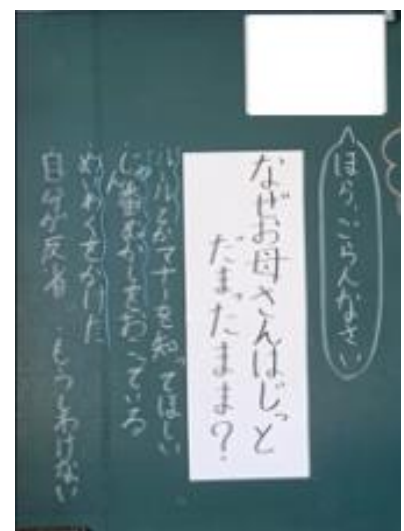 ほら、ごらんなさい
なぜお母さんはじっと
だまったまま？
ルールやマナーを知ってほしい
じゅん番ぬかしをおこっている
めいわくをかけた
自分が反省 もうしわけない